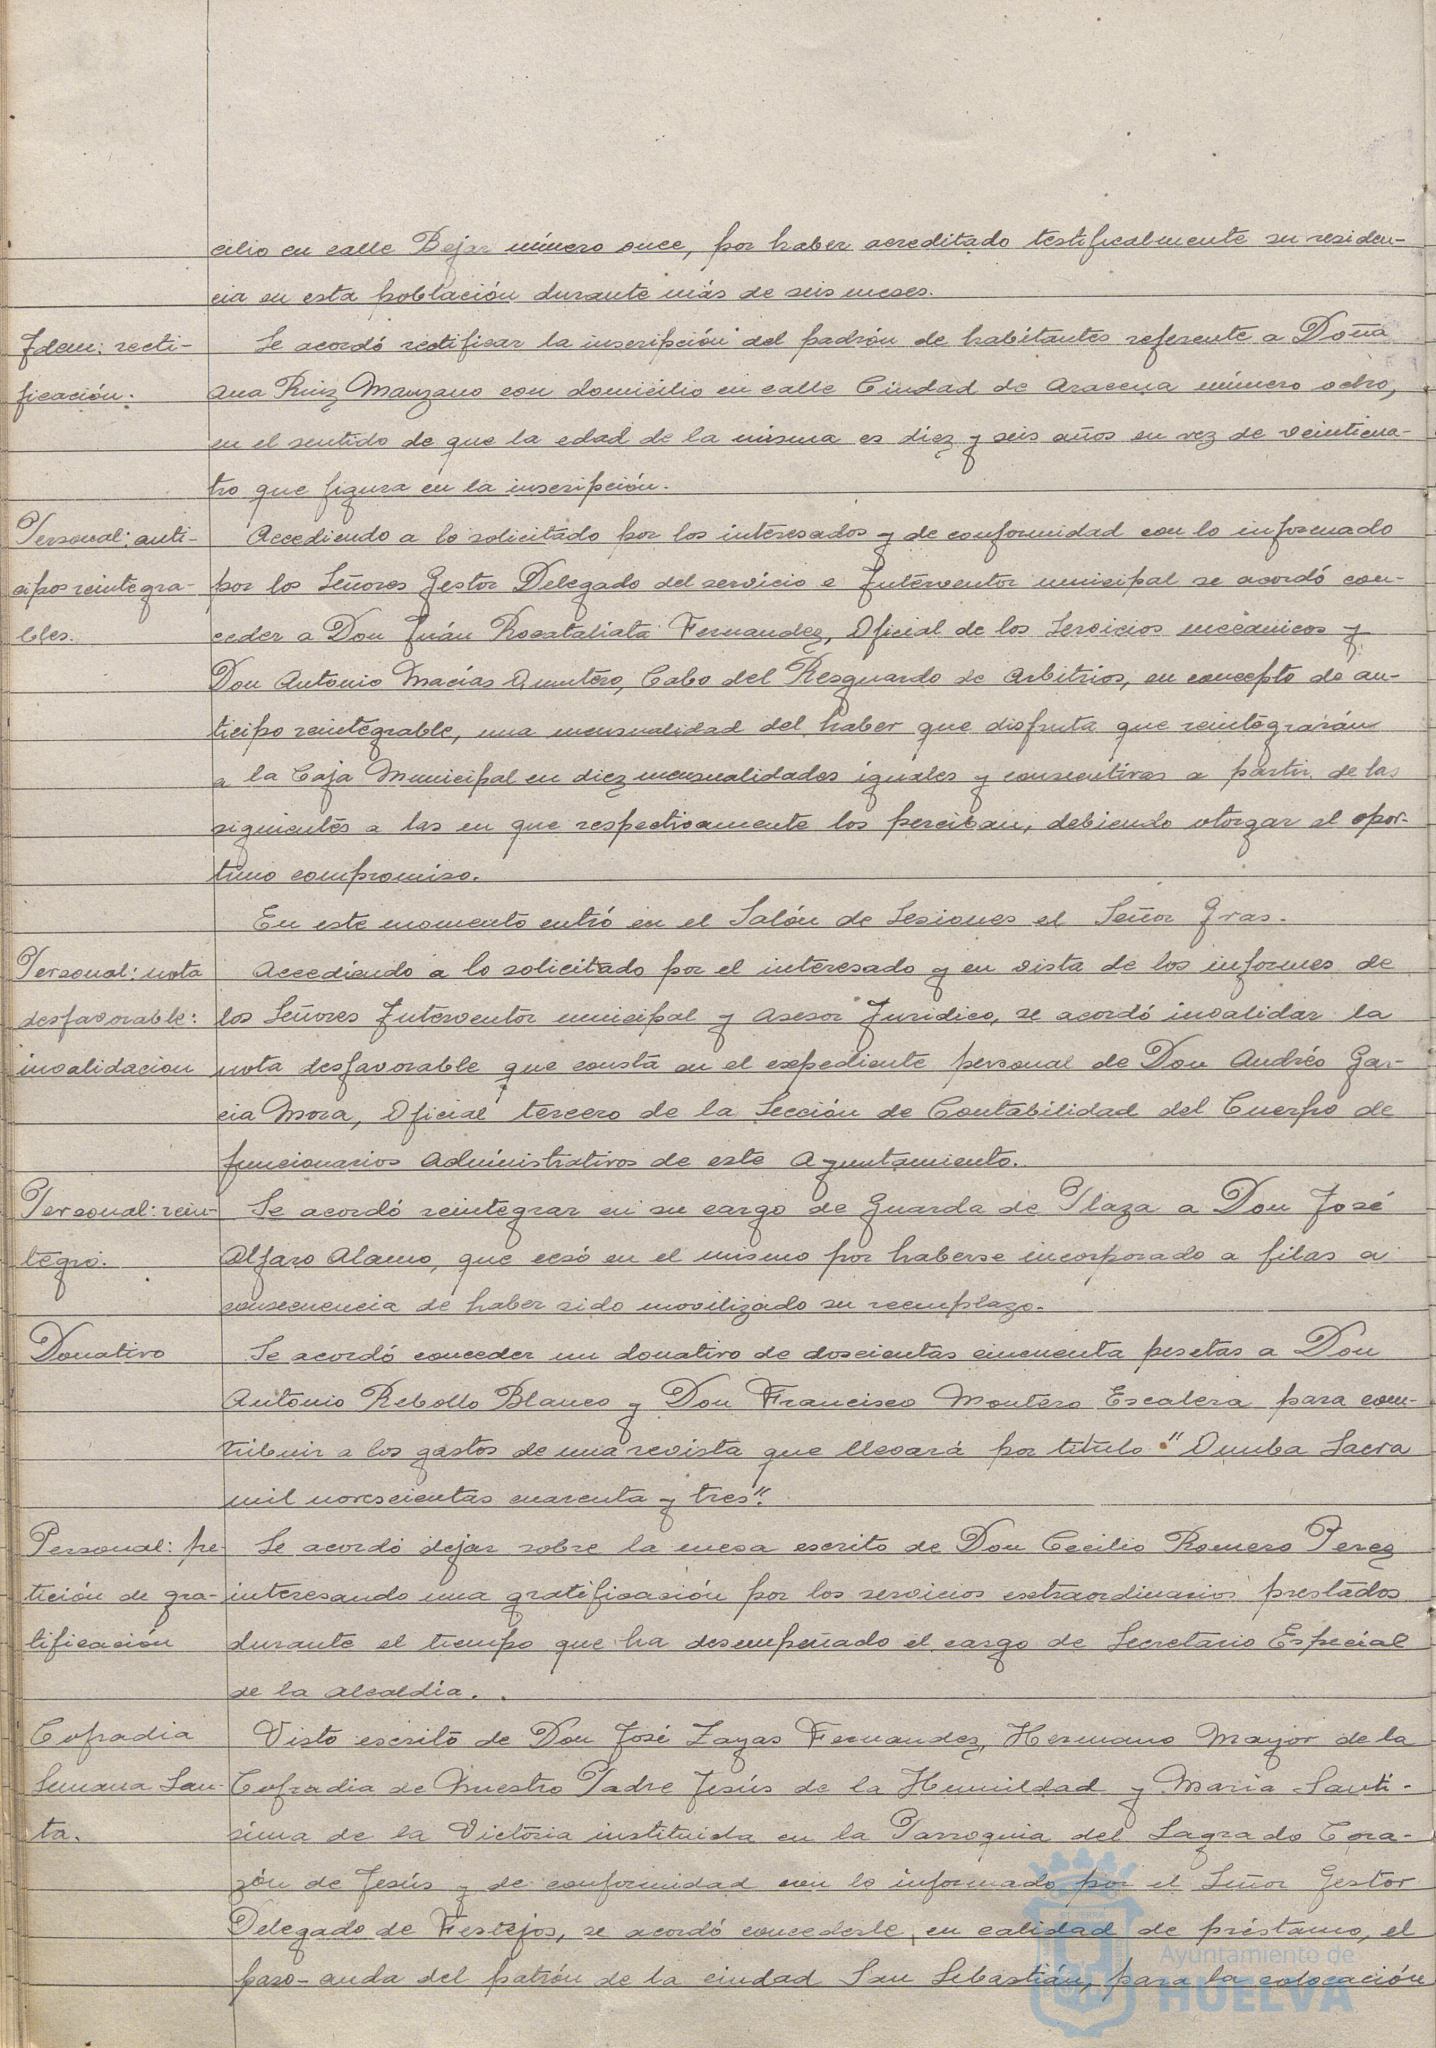 cilio en calle Bejar número once, por haber acreditado testificalmente su residen-
cia en esta población durante más de seis meses.
Idem: recti-
ficación.
Se acordó rectificar la inscripción del padrón de habitantes referente a Doña
Ana Ruiz Manzano con domicilio en calle Ciudad de Aracena número ocho,
en el sentido de que la edad de la misma es diez y seis años en vez de veinticua-
tro que figura en la inscripción.
Personal: anti-
cipos reintegra-
bles.
Accediendo a lo solicitado por los interesados y de conformidad con lo informado
por los Señores Gestor Delegado del servicio e Interventor municipal se acordó con-
ceder a Don Juán Rocataliata Fernandez, Oficial de los Servicios mecánicos y
Don Antonio Macías Quintero, Cabo del Resguardo de Arbitrios, en concepto de an-
ticipo reintegrable, una mensualidad del haber que disfruta que reintegrarán
a la Caja Municipal en diez mensualidades iguales y consecutivas a partir de las
siguientes a las en que respectivamente los perciban, debiendo otorgar el opor-
tuno compromiso.
En este momento entró en el Salón de Sesiones el Señor Gras.
Personal: nota
desfavorable:
invalidacion
Accediendo a lo solicitado por el interesado y en vista de los informes de
los Señores Interventor municipal y Asesor Jurídico, se acordó invalidar la
nota desfavorable que consta en el expediente personal de Don Andrés Gar-
cia Mora, Oficial tercero de la Sección de Contabilidad del Cuerpo de
funcionarios Administrativos de este Ayuntamiento.
Personal: rein-
tegro.
Se acordó reintegrar en su cargo de Guarda de Plaza a Don José
Alfaro Alamo, que cesó en el mismo por haberse incorporado a filas a
consecuencia de haber sido movilizado su reemplazo.
Donativo
Se acordó conceder un donativo de doscientas cincuenta pesetas a Don
Antonio Rebollo Blanco y Don Francisco Montero Escalera para con-
tribuir a los gastos de una revista que llevará por título "Onuba Sacra
mil novescientas cuarenta y tres".
Personal: pe-
tición de gra-
tificación
Se acordó dejar sobre la mesa escrito de Don Cecilio Romero Perez
interesando una gratificación por los servicios extraordinarios prestados
durante el tiempo que ha desempeñado el cargo de Secretario Especial
de la alcaldia.
Cofradia
Semana San-
ta.
Visto escrito de Don José Zayas Fernandez, Hermano Mayor de la
Cofradia de Nuestro Padre Jesús de la Humildad y Maria Santi-
sima de la Victoria instituida en la Parroquia del Sagrado Cora-
zón de Jesús y de conformidad con lo informado por el Señor Gestor
Delegado de Festejos, se acordó concederle, en calidad de préstamo, el
paso-anda del patrón de la ciudad San Sebastián, para la colocación
Ayuntamiento de
HUELVA